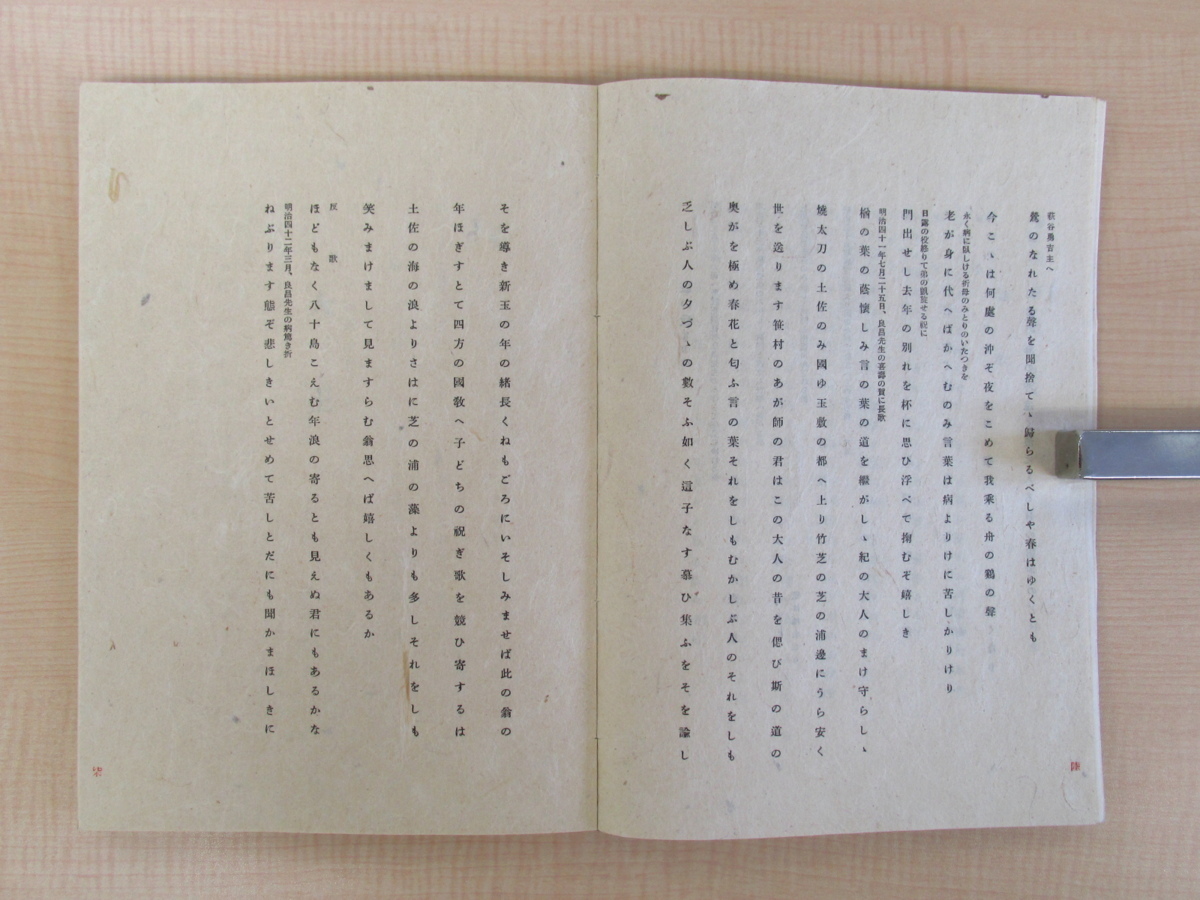 萩谷善吉主へ
鶯のなれたる聲を聞捨てゝ歸らるべしや春はゆくとも
今こゝは何處の沖ぞ夜をこめて我乘る舟の鷄の聲
永く病に臥しける祈母のみとりのいたつきを
老が身に代へばかへむのみ言葉は病よりけに苦しかりけり
日露の役終りて弟の凱旋せる祝に
門出せし去年の別れを杯に思ひ浮べて掬むぞ嬉しき
明治四十一年七月二十五日、良昌先生の喜壽の賀に長歌
楢の葉の蔭懷しみ言の葉の道を櫪がしゝ紀の大人のまけ守らしゝ
燒太刀の土佐のみ國ゆ玉敷の都へ上り竹芝の芝の浦邊にうら安く
世を送ります笹村のあが師の君はこの大人の昔を偲び斯の道の
奥がを極め春花と匂ふ言の葉それをしもむかしぶ人のそれをしも
乏しぶ人の夕づゝの數そふ如く這子なす慕ひ集ふをそを諭し
陸
そを導き新玉の年の緒長くねもごろにいそしみませば此の翁の
年ほぎすとて四方の國敎へ子どちの祝ぎ歌を競ひ寄するは
土佐の海の浪よりさはに芝の浦の藻よりも多しそれをしも
笑みまけまして見ますらむ翁思へば嬉しくもあるか
反歌
ほどもなく八十島こえむ年浪の寄るとも見えぬ君にもあるかな
明治四十二年三月、良昌先生の病篤き折
ねぶります態ぞ悲しきいとせめて苦しとだにも聞かまほしきに